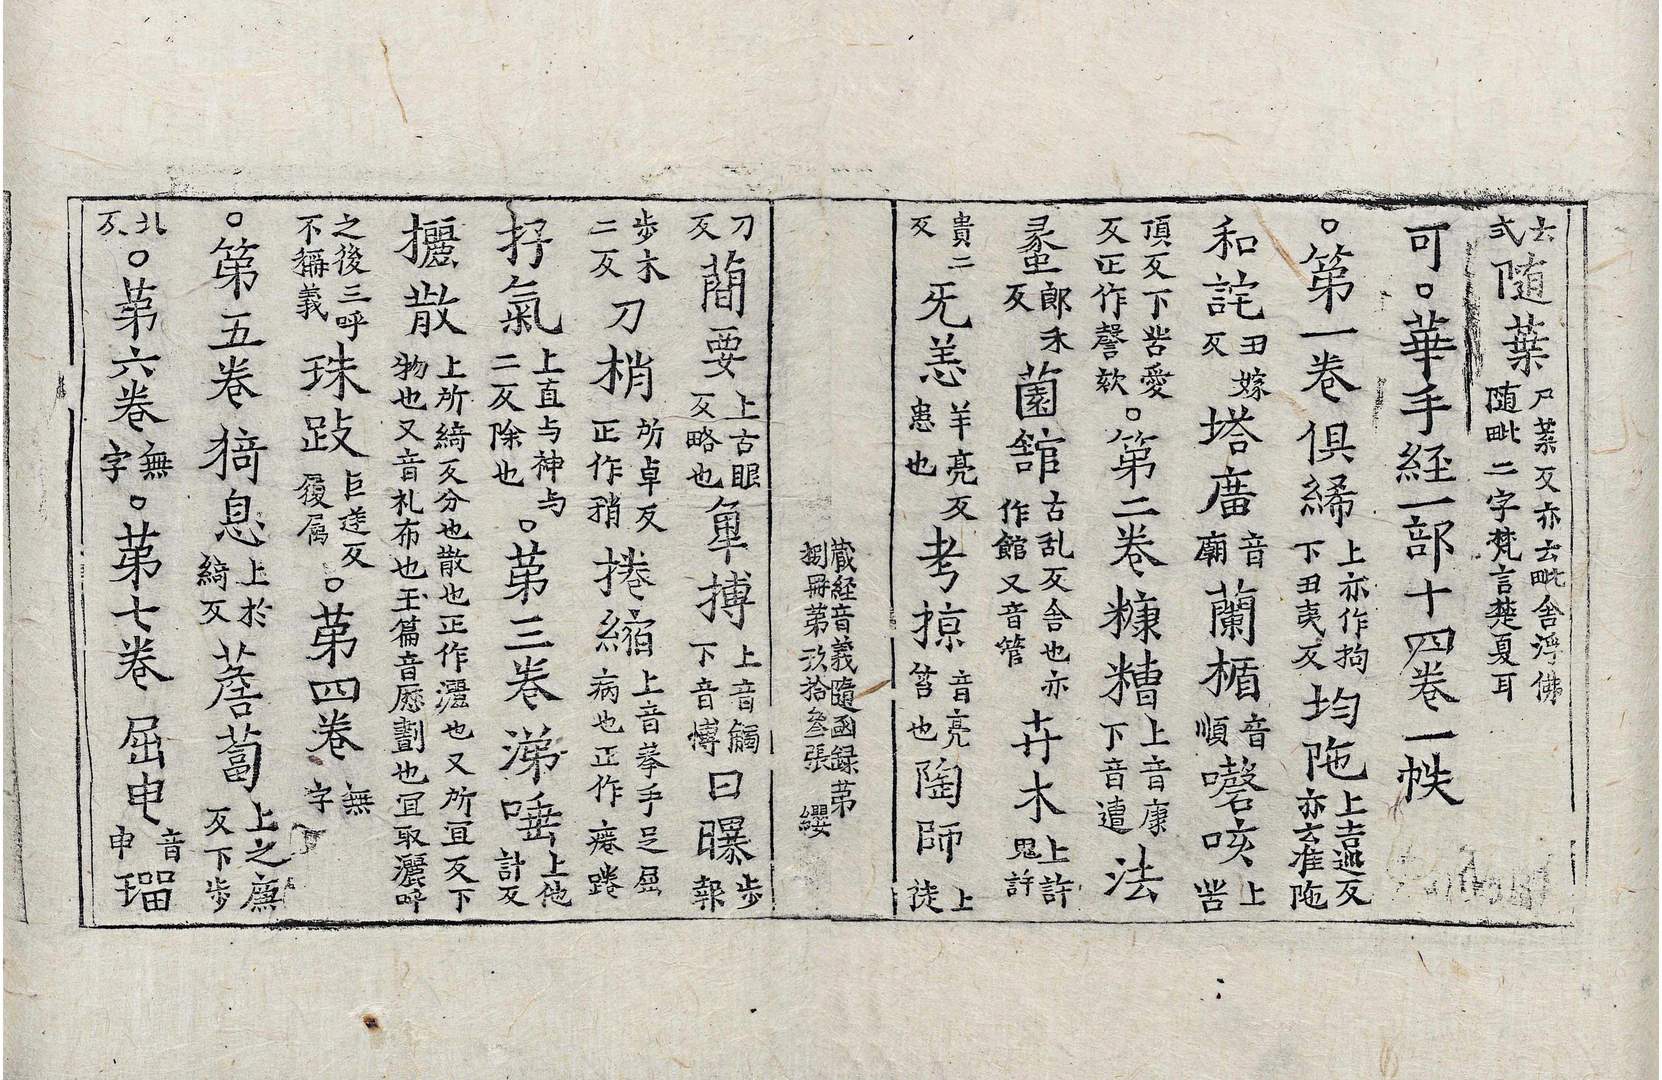 去弍随葉尸葉反亦云毗舎浮佛随毗二字梵言楚夏耳
可○華手経一部十四卷一帙
○第一卷俱絺上亦作拘下丑夷反均陁上吉巡反亦云准陁
和詫丑嫁反塔廣音廟蘭楯音順嚫咳上苦
頂反下苦愛反正作謦欬○第二卷糠糟上音康下音遭法
蠡郎禾反薗舘古乱反舎也亦作館又音管卉木上許思許
貴二反旡恙羊亮反患也考掠音亮笞也陶師上徒
蔵経音義隨函録第捌冊第玖拾叁張 纓
刀反蕳要上古眼反略也舉搏上音觸下音愽曰曝步報
步木二反刀梢所卓反正作矟捲縮上音拳手足屈病也正作癃踡
抒氣上直与神与二反除也○苐三卷涕唾上他計反
攦散上所綺反分也散也正作灑也又所冝反下物也又音礼布也玉篇音歷劃也冝取灑呼
之後三呼不稱義珠跂巨逆反履属○苐四卷無字
○第五卷猗息上於綺反蔗蔔上之廉反下步
北反○苐六卷無字○苐七卷屈申音申瑠